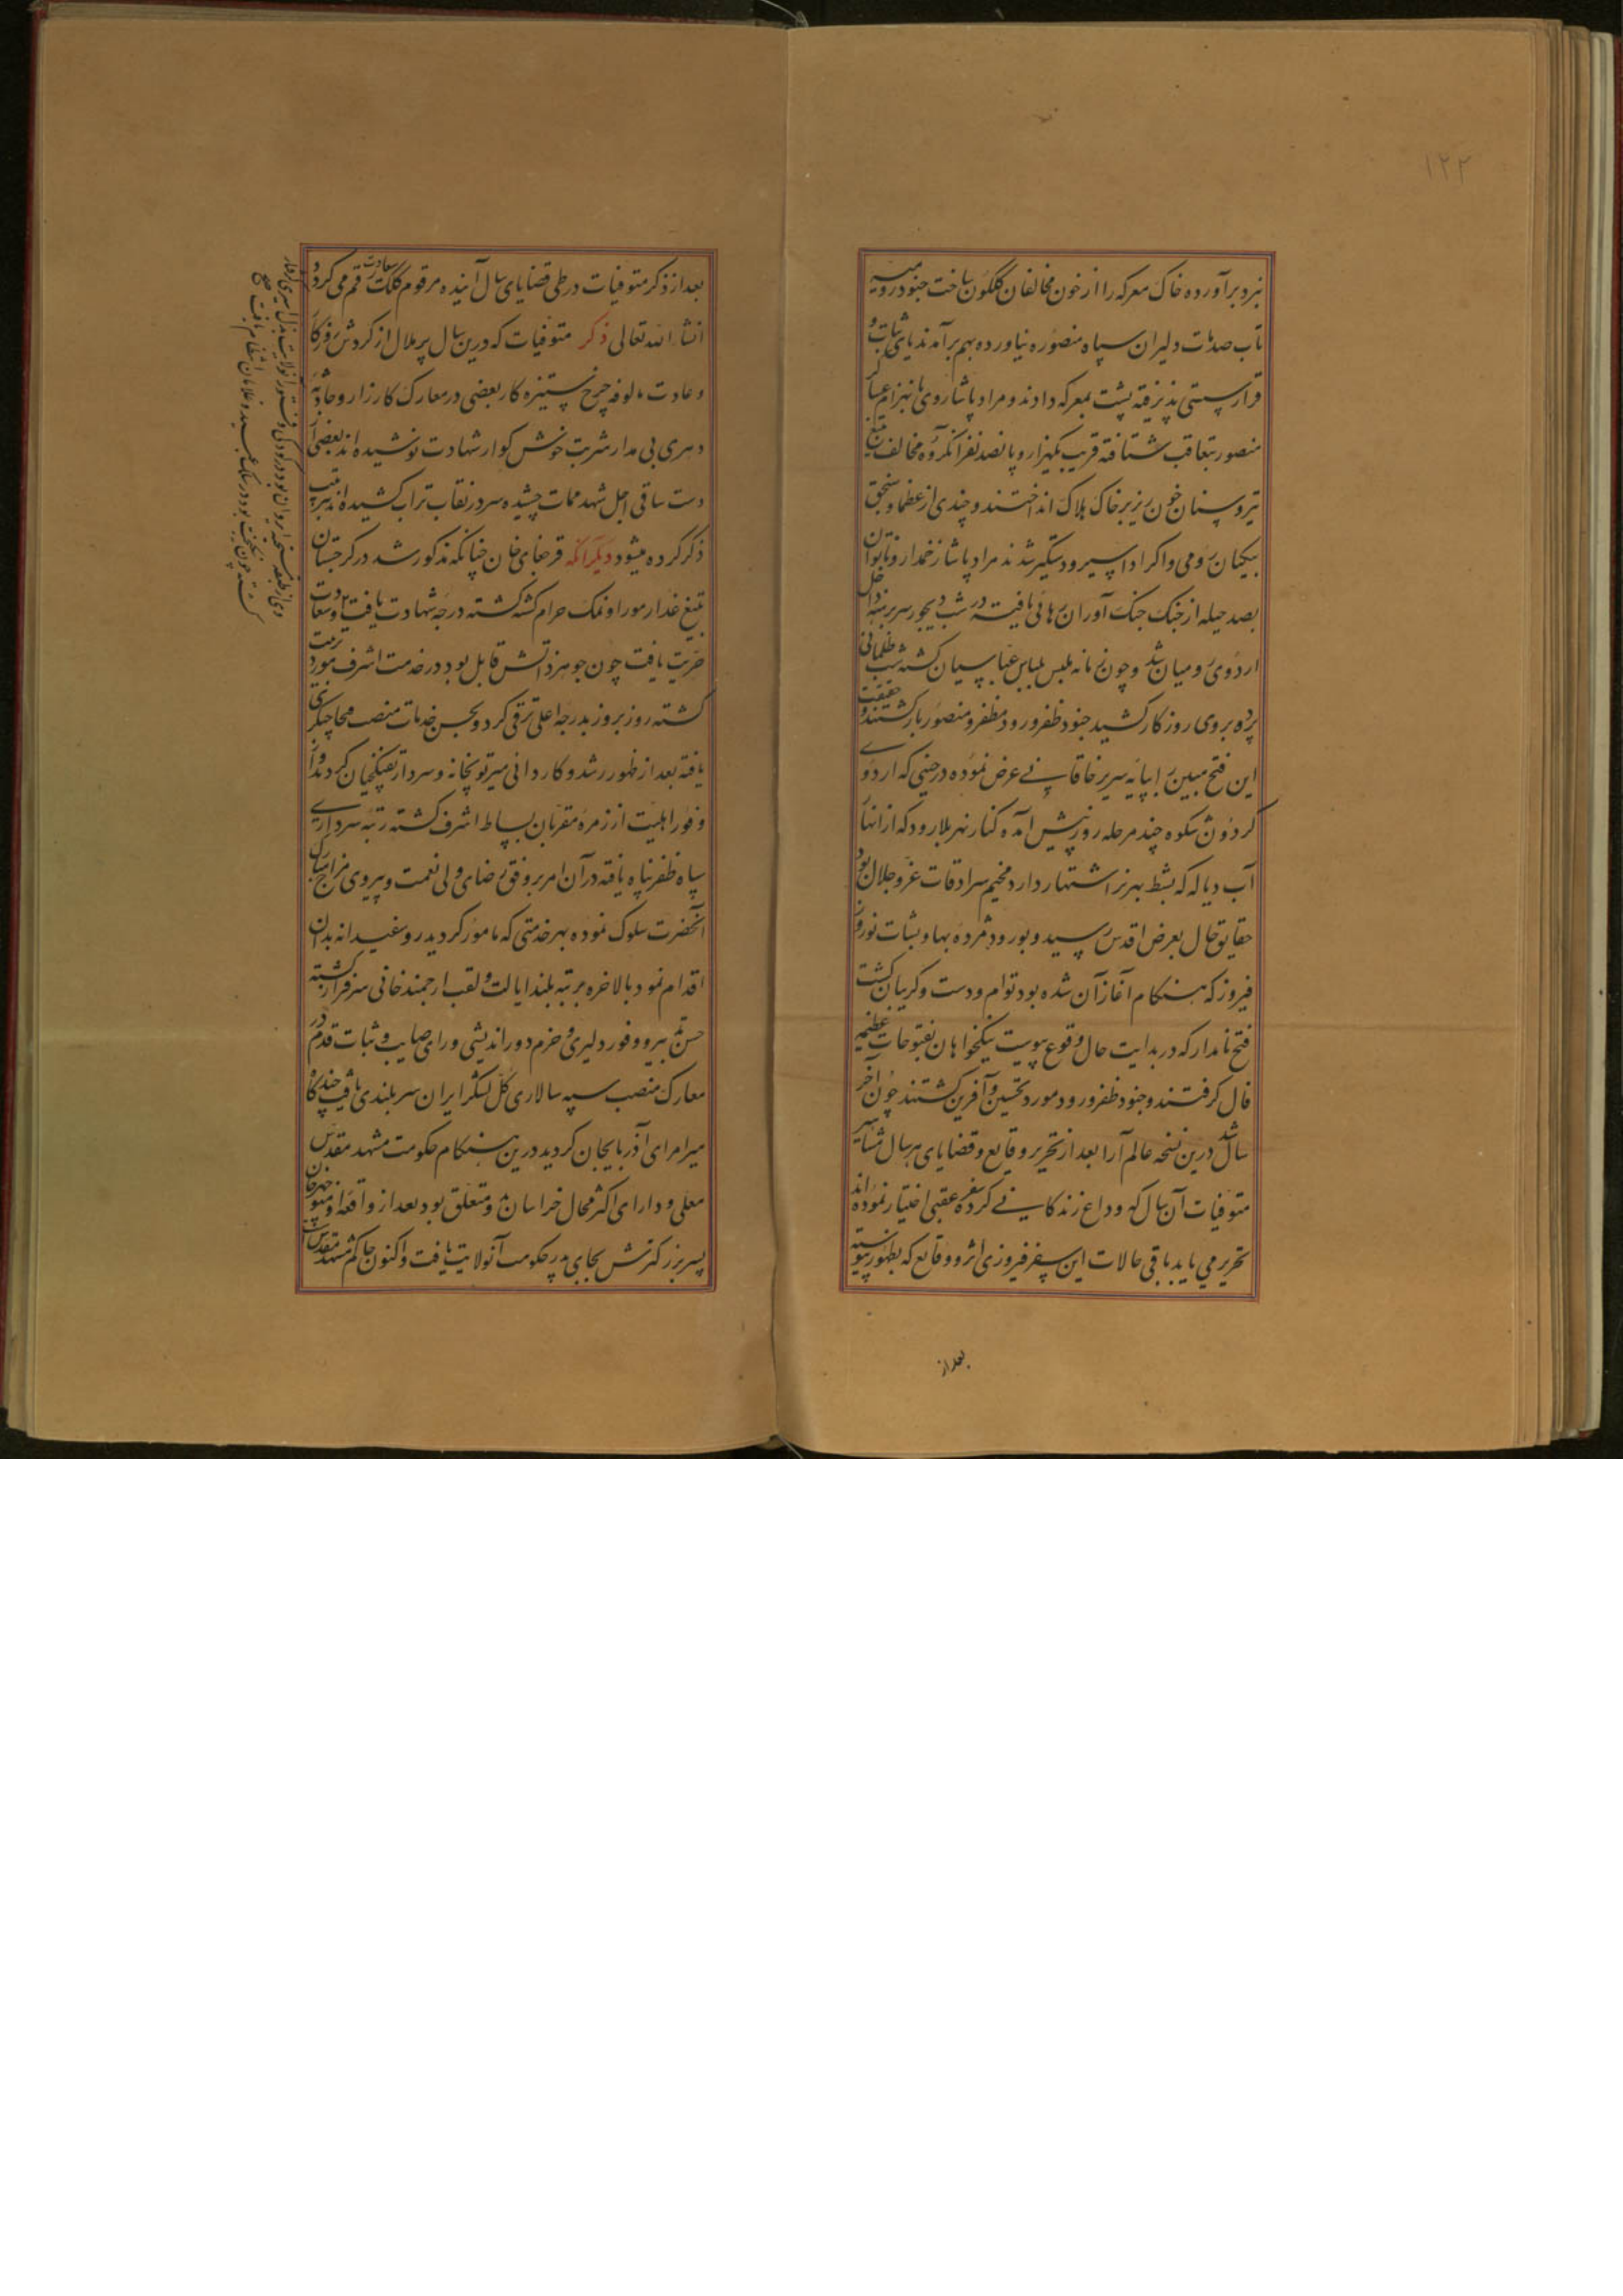 ۱۲۲
نبرد برآورده خاک معرکه را از خون مخالفان گلگون ساخت جنود رومیه
تاب صدمات دلیران سپاه منصوره نیاورده بهم برآمدند پای ثبات و
قرار سستی پذیرفته پشت بمعرکه دادند و مراد پاشا روی بانهزام عساکر
منصور بتعاقب شتافته قریب یکهزار و پانصد نفر از گروه مخالف بتیغ
تیر و سنان خون ریز بر خاک هلاک انداختند و چندی از عظما و سنجق
بیکیان رومی و اکراد اسیر و دستگیر شدند مراد پاشا زخمدار و ناتوان
بصد حیله از چنک جنک آوران رهائی یافته در شب دیجور سر برهنه داخل
اردوی رومیان شد و چون زمانه ملبس بلباس عباسیان گشته شب ظلمانی
پرده بر روی روزگار کشید جنود ظفر ورود مظفر و منصور بازگشتند و حقیقت
این فتح مبین را بپایه سریر خاقانی عرض نموده در حینی که اردوی
گردون شکوه چند مرحله روز پیش آمده کنار نهر بلارود که از انهار
آب دیاله که بشط بهرز اشتهار دارد مخیم سرادقات عز و جلال بود
حقایق حال بعرض اقدس رسید و بورود مژده بها و بثبات نوروز
فیروز که هنکام آغاز آن شده بود توام و دست و گریبان گشت
فتح نامدار که در بدایت حال وقوع پیوست نیکخواهان بفتوحات عظیمه
فال گرفتند و جنود ظفر ورود مورد تحسین و آفرین گشتند چون آخر
سال شد درین نسخه عالم آرا بعد از تحریر وقایع و قضایای هر سال مشاهیر
متوفیات آن سال که وداع زندگانی کرده سفر عقبی اختیار نموده اند
تحریر می یابد باقی حالات این سفر فیروزی اثر و وقایع که بظهور پیوسته
بعد از
بعد از ذکر متوفیات در طی قضایای سال آینده مرقوم کلک سعادت رقم می گردد
انشاء الله تعالی ذکر متوفیات که درین سال پر ملال از گردش روزگار
و عادت مالوفه چرخ ستیزه کار بعضی در معارک کارزار و حادثه
دهری بی مدار شربت خوش گوار شهادت نوشیده اند بعضی از
دست ساقی اجل شهد ممات چشیده سر در نقاب تراب کشیده اند بترتیب
ذکر کرده میشود دیگر آنکه قرچغای خان چنانکه مذکور شد در گرجستان
بتیغ غدار موراو نمک حرام کشته گشته درجه شهادت یافت و سعادت
حریت یافت چون جوهر ذاتش قابل بود در خدمت اشرف مورد تربیت
گشته روز بروز بدرجه اعلی ترقی کرد و بحسن خدمات منصب
یافته بعد از ظهور رشد و کاردانی میر توپخانه و سردار تفنکچیان گردید و از
وفور اهلیت از زمره مقربان بساط اشرف گشته رتبه سرداری
سپاه ظفر پناه یافته در آن امر بر وفق رضای ولی نعمت و پیروی مزاج مبارک
آنحضرت سلوک نموده بهر خدمتی که مامور گردید روسفیدانه بدان
اقدام نمود بالاخره برتبه بلند ایالت و لقب ارجمند خانی سرفراز گشته
حسن تدبیر و وفور دلیری و حزم دوراندیشی و رای صایب و ثبات قدم در
معارک منصب سپه سالاری کل لشکر ایران سربلندی یافت چند گاه
میر امرای آذربایجان گردید درین هنکام حکومت مشهد مقدس
معلی و دارای اکثر محال خراسان بدو متعلق بود بعد از واقعه او منوچهر خان
پسر بزرکترش بجای پدر حکومت آنولایت یافت و اکنون حاکم مشهد مقدس است